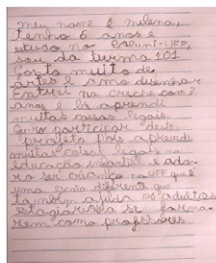 meu nome é Milena,
tenho 6 anos e
estudo no Coluni-UFF,
sou da turma 101
Gosto muito de
artes e amo desenhar
Entrei na creche com 2
anos e lá aprendi
muitas coisas legais.
Quero participar deste
projeto pois aprendi
muitas coisas legais na
educação infantil e ado-
ro ser criança na UFF que é
uma escola diferente que
também ajuda os adultos
estagiários a se forma-
rem como professores.